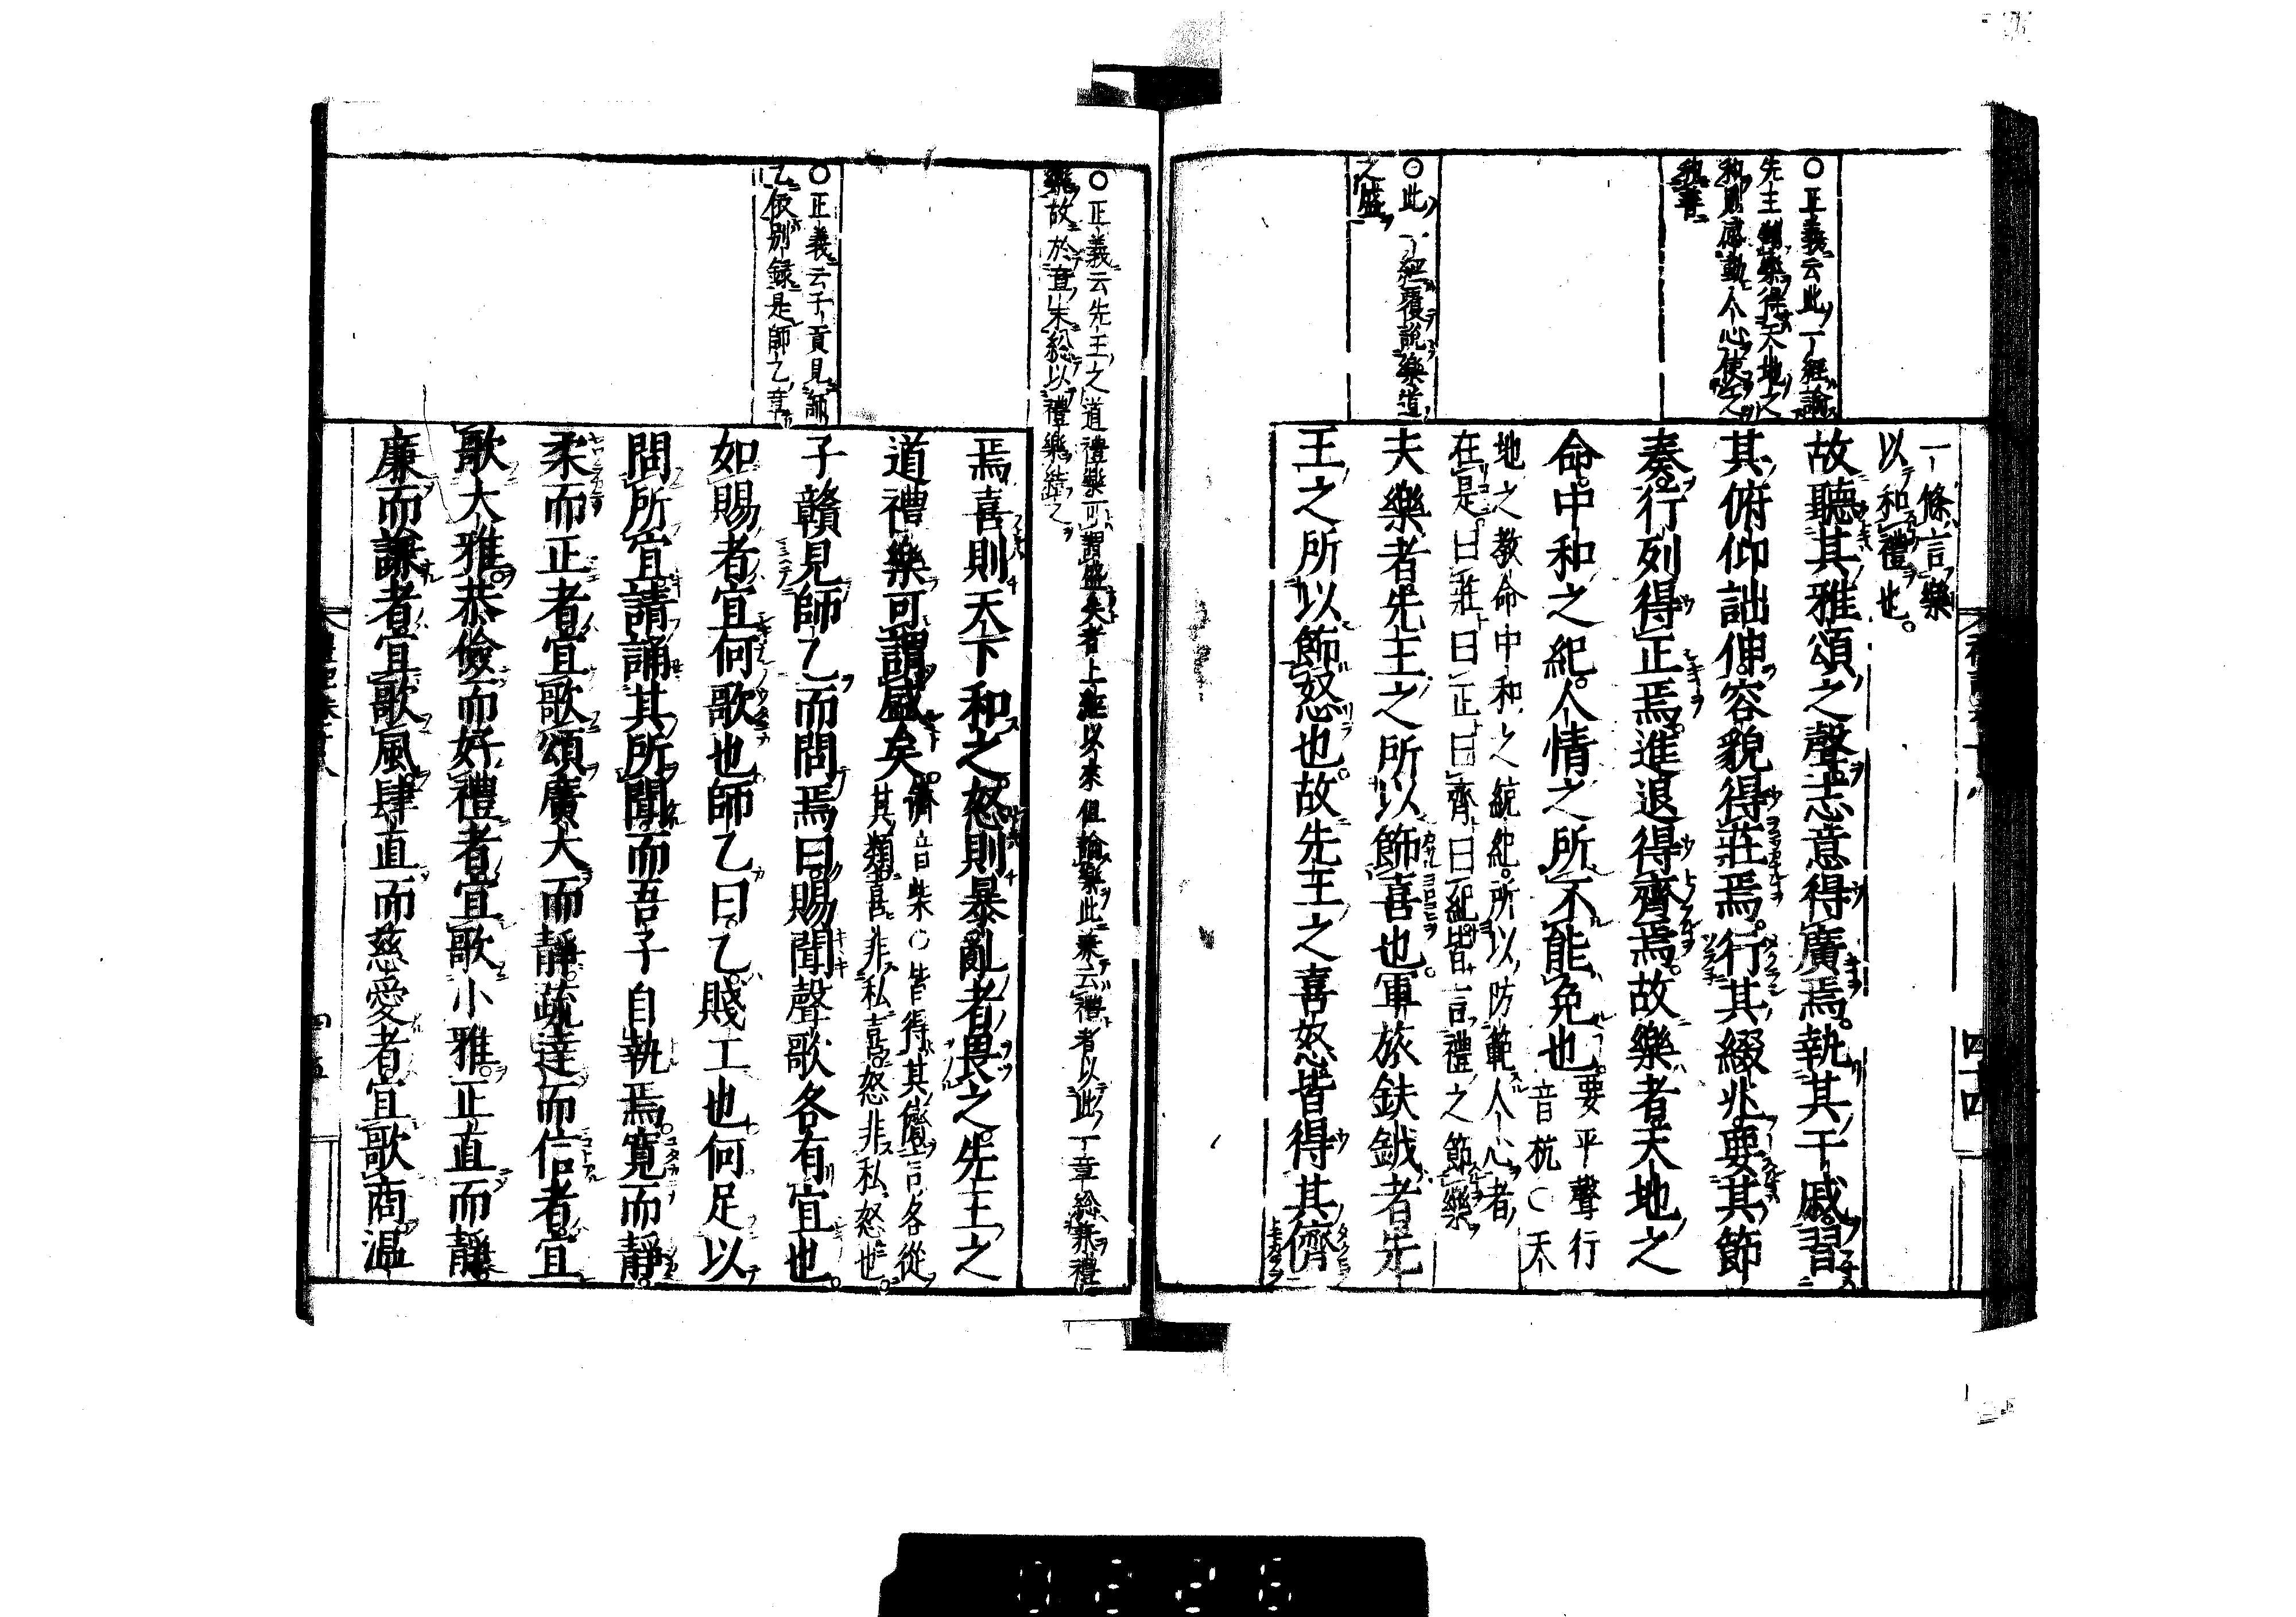 〇正義云此一經論
先王制樂得天地之
和則感動人心使之
和善
〇此一經覆說樂道
之盛
一條言樂
以和禮也
故聽其雅頌之聲志意得廣焉執其干戚習
其俯仰詘伸容貌得莊焉行其綴兆要其節
奏行列得正焉進退得齊焉故樂者天地之
命中和之紀人情之所不能免也要平聲行
音杭〇天
地之教命中和之統紀所以防範人心者
在是曰莊曰正曰齊曰紀皆言禮之節樂
夫樂者先王之所以飾喜也軍旅鈇鉞者先
王之所以飾怒也故先王之喜怒皆得其儕
四十四
〇正義云先王之道禮樂可謂盛矣者上經以來但論樂此乘云禮者以此一章總兼禮
樂故於章末總以禮樂結之
〇正義云子貢見師
乙依別錄是師乙章
焉喜則天下和之怒則暴亂者畏之先王之
道禮樂可謂盛矣儕音柴〇皆得其儕言各從
其類喜非私喜怒非私怒也
子贛見師乙而問焉曰賜聞聲歌各有宜也
如賜者宜何歌也師乙曰乙賤工也何足以
問所宜請誦其所聞而吾子自執焉寬而靜
柔而正者宜歌頌廣大而靜疏達而信者宜
歌大雅恭儉而好禮者宜歌小雅正直而靜
廉而謙者宜歌風肆直而慈愛者宜歌商溫
0226